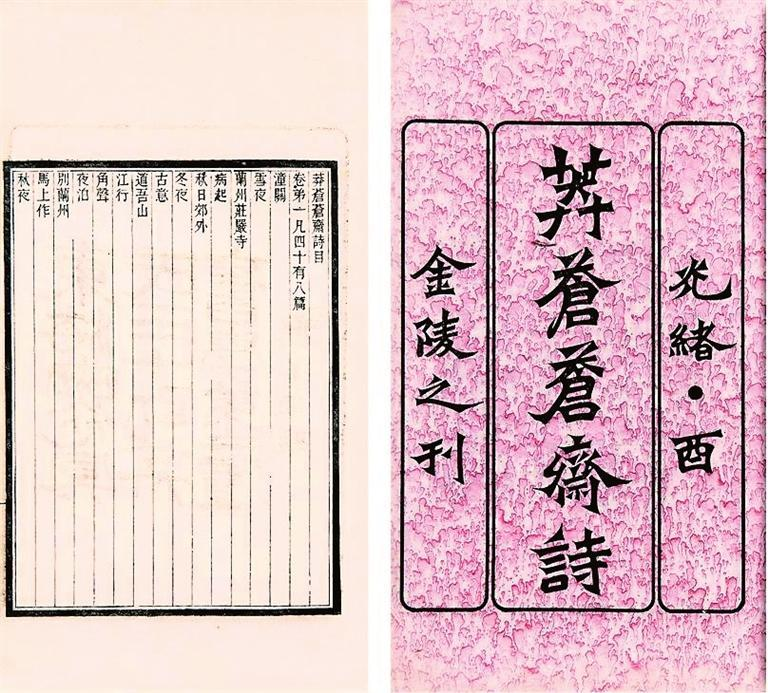 光緒•酉
莽蒼蒼齋詩
金陵之刊
莽蒼蒼齋詩目
卷第一凡四十有八篇
潼關
雪夜
蘭州莊嚴寺
病起
秋日郊外
冬夜
古意
道吾山
江行
角聲
夜泊
別蘭州
馬上作
秋夜